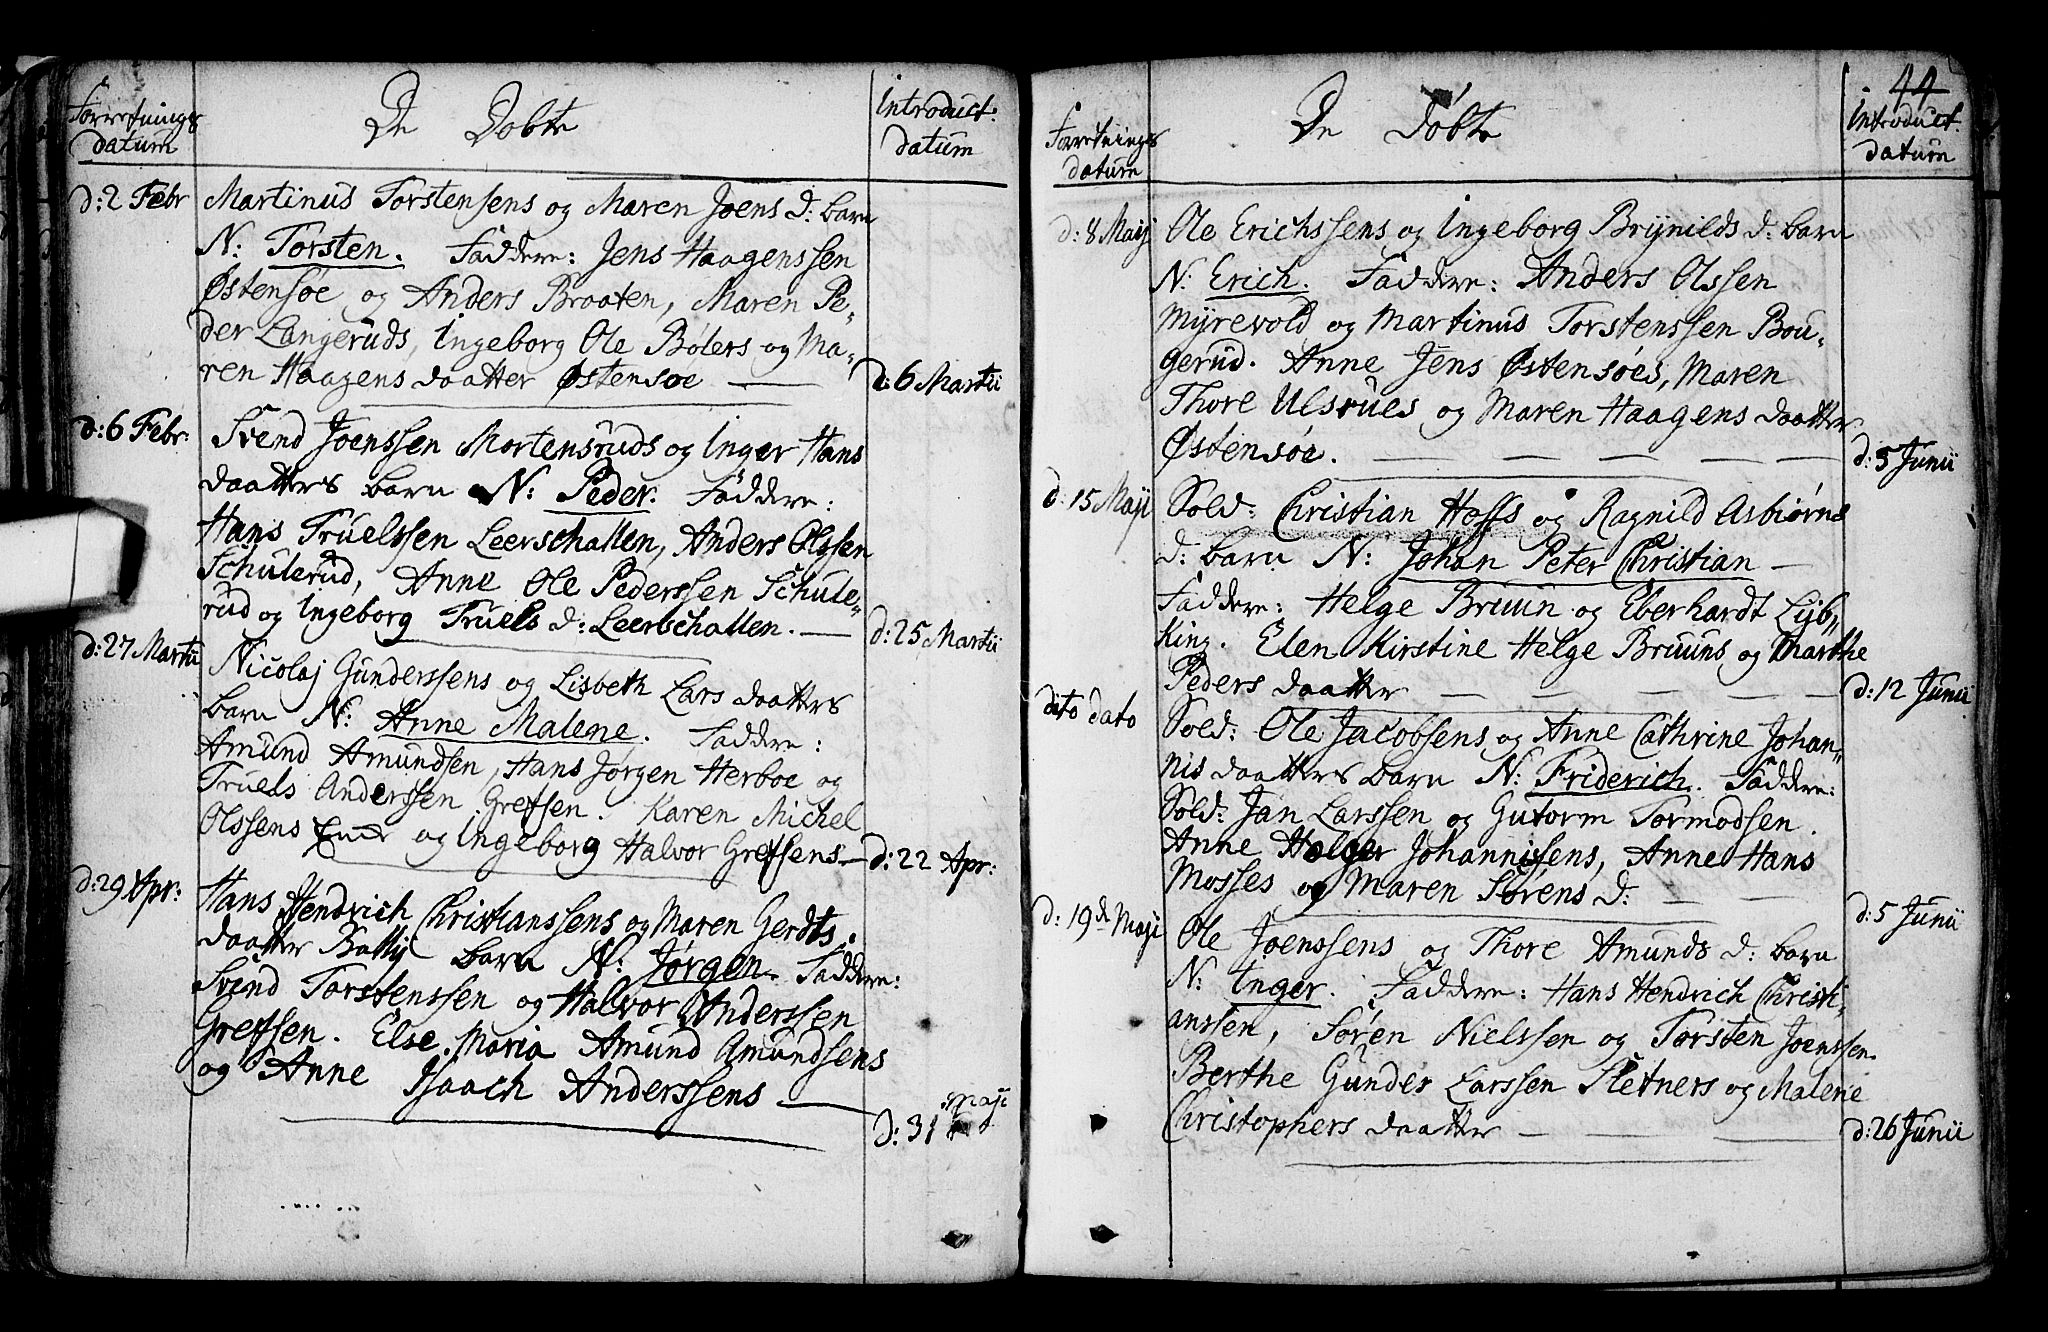 Forretnings
datum
De Døbte
Introduct:
datum
d: 2 Febr
Martinus Torstensens og Maren Joens d: barn
N: Torsten. Faddere: Jens Haagenssen
Østensøe og Anders Braaten, Maren Pe-
der Langeruds, Ingeborg Ole Bølers og Ma-
ren Haagens daatter Østensøe —
d: 6 Martii
d: 6 Febr:
Svend Joenssen Mortensruds og Inger Hans
daatters barn N: Peder. Faddere:
Hans Truelssen Leerschallen, Anders Olssen
Schulerud, Anne Ole Pederssen Schule-
rud og Ingeborg Truels d: Leerschallen. —
d: 25 Martii
d: 27 Martii
Nicolaj Gunderssens og Lisbeth Lars daatters
barn N: Anne Malene. Faddere:
Amund Amundsen, Hans Jørgen Herboe og
Truels Anderssen Grefsen. Karen Michel
Olssens og Ingeborg Halvor Grefsens —
d: 22 Apr:
d: 29 Apr:
Hans Hendrich Christianssens og Maren Gerdts
daatter Battij barn N: Jørgen. Faddere:
Svend Torstenssen og Halvor Anderssen
Grefsen. Else Maria Amund Amundsens
og Anne Isaach Anderssens —
Maji
d: 31
44
Forretnings
datum
De Døbte
Introduct.
datum
d: 8 Maij
Ole Erichssens og Ingeborg Brynilds d: barn
N: Erich. Faddere: Anders Olssen
Myrevold og Martinus Torstenssen Bou-
gerud. Anne Jens Østensøes, Maren
Thore Ulsrues og Maren Haagens daatter
Østensøe. — — — — —
d: 5 Junii
d: 15 Maji
Sold: Christian Hoffs og Ragnild Asbiørns
d: barn N: Johan Peter Christian —
Faddere: Helge Bruun og Eberhardt Lyb-
king. Elen Kirstine Helge Bruuns og Marthe
Peders daatter — — — — —
d: 12 Junii
dito dato
Sold: Ole Jacobsens og Anne Cathrine Johan-
nis daatters barn N: Friderich. Faddere:
Sold: Jan Larssen og Gutorm Tormodsen.
Anne Holger Johannisens, Anne Hans
Mosses og Maren Sørens d: — —
d: 5 Junii
d: 19de Maji
Ole Joenssens og Thore Amunds d: barn
N: Inger. Faddere: Hans Hendrich Christi-
anssen, Søren Nielssen og Torsten Joenssen.
Berthe Gunder Larssen Sletners og Malene
Christophers daatter — — — —
d: 26 Junii